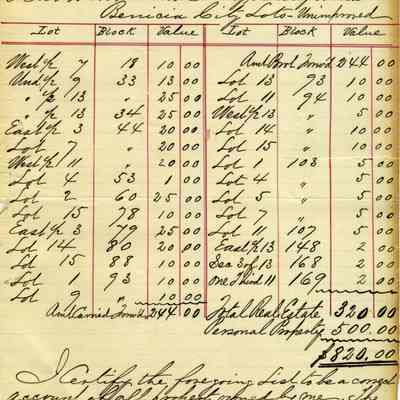 Benicia City Lots - Unimproved
Lot Block Value Lot Block Value
West ½ 7 18 10 00 Amt Brot Forw'd 244 00
Und ½ 9 33 13 00 Lot 13 93 10 00
" ½ 13 " 25 00 Lot 11 94 10 00
" ½ 13 34 25 00 West ½ 13 " 5 00
East ½ 3 44 20 00 Lot 14 " 10 00
Lot 7 " 20 00 Lot 15 " 10 00
West ½ 11 " 20 00 Lot 1 103 5 00
Lot 4 53 1 00 Lot 4 " 5 00
Lot 2 60 25 00 Lot 5 " 5 00
Lot 15 78 10 00 Lot 7 " 5 00
East ½ 3 79 25 00 Lot 11 107 5 00
Lot 14 80 20 00 East ½ 13 148 2 00
Lot 15 88 10 00 Sec 3 of 13 168 2 00
Lot 1 93 10 00 One Third 11 169 2 00
Lot 9 " 10 00
Amt Carried Forw'd 244 00 Total Real Estate 320.00
Personal Property 500.00
$820.00
I Certify the foregoing List to be a correct
account of all property owned by me